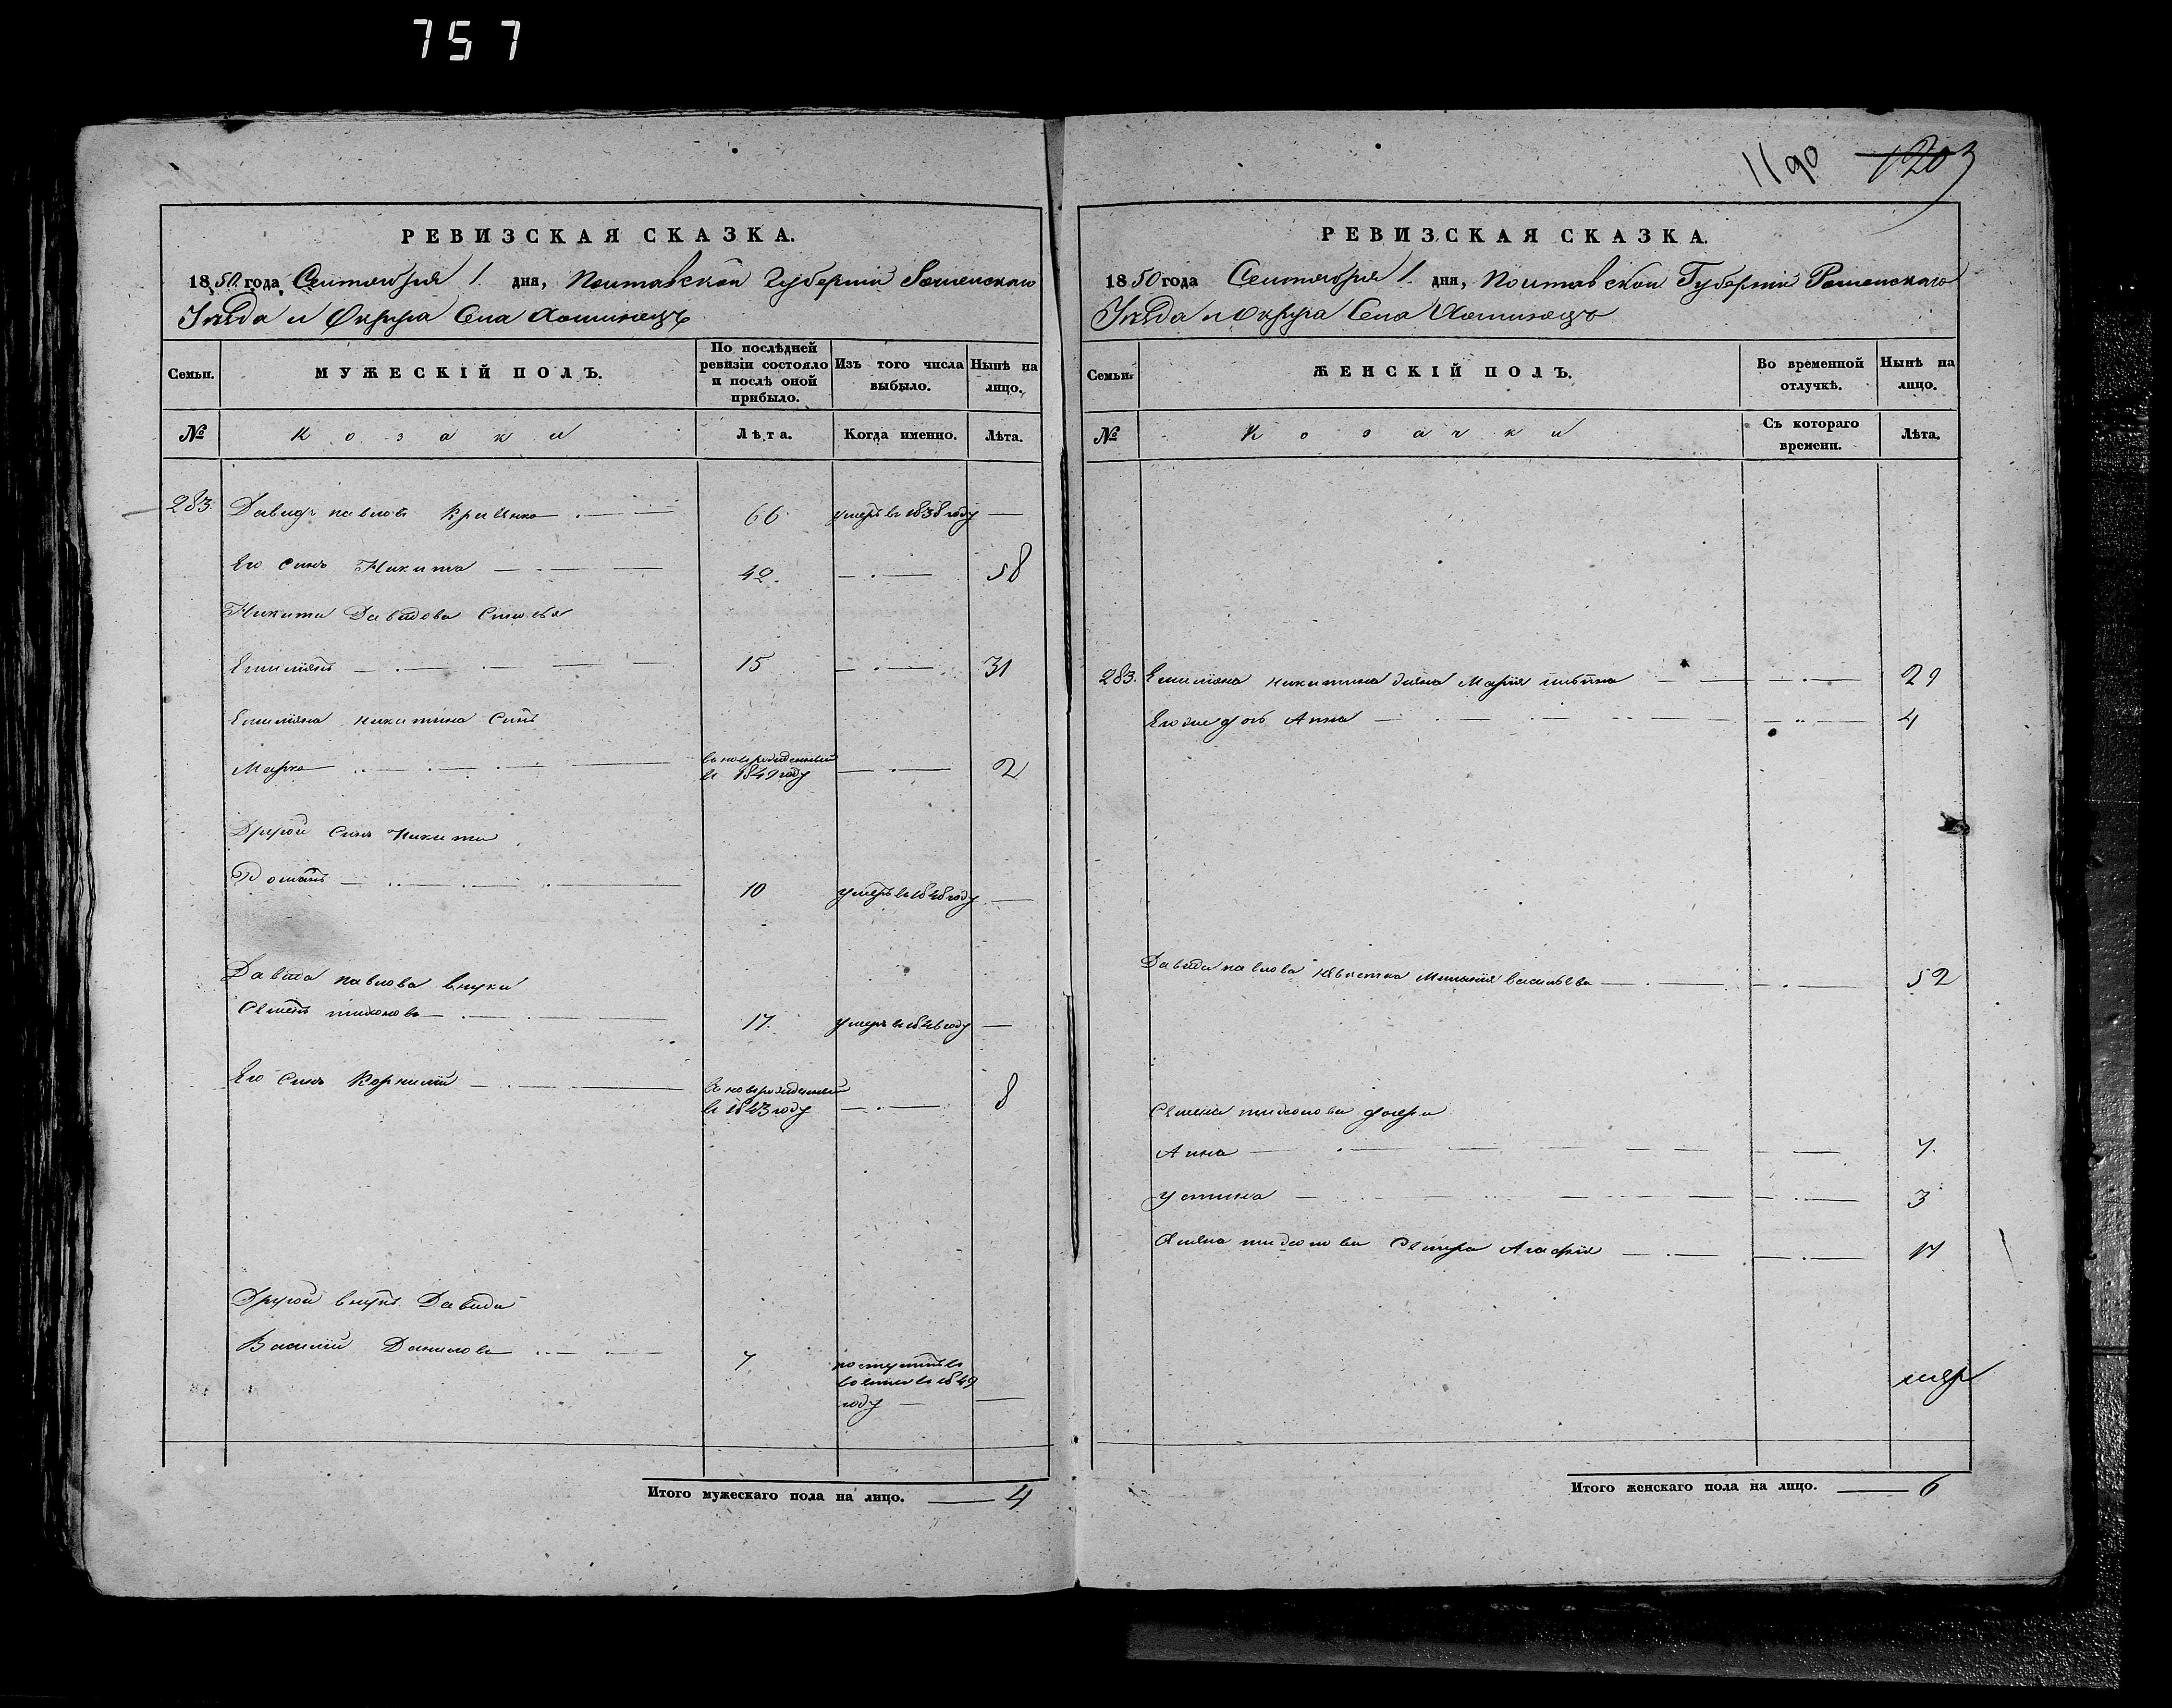 757
1190 1203
РЕВИЗСКАЯ СКАЗКА.
1850 года Сентября 1 дня, Полтавской Губерніи Роменскаго
Уѣзда и Округа Села
Семьи.
МУЖЕСКІЙ ПОЛЪ.
По послѣдней ревизіи состояло и послѣ оной прибыло.
Изъ того числа выбыло.
Нынѣ на лицо.
№
Козаки
Лѣта.
Когда именно.
Лѣта.
283. Давидъ Павловъ 66 умеръ въ 1838 году —
Его Синъ Никита 42. 58
Никити Давидова Синовья
Емиліянъ 15 31
Емиліяна Никитина Синъ
Марко новорожденный въ 1849 году 2
Другой Синъ Никити
Романъ 10 умеръ въ 1848 году —
Давида Павлова внуки
Семенъ Тихоновъ 17. умеръ въ 1846 году —
Его Синъ Корнилій новорожденный въ 1843 году 8
Другой внукъ Давида
Василій Даниловъ 7 поступилъ въ 1849 году —
Итого мужескаго пола на лицо. 4
РЕВИЗСКАЯ СКАЗКА.
1850 года Сентября 1. дня, Полтавской Губерніи Роменскаго
Уѣзда и Округа Села
Семьи.
ЖЕНСКІЙ ПОЛЪ.
Во временной отлучкѣ.
Нынѣ на лицо.
№
Козачки
Съ котораго времени.
Лѣта.
283. Емиліяна Никитина Жена Марія Ильина 29
Его же дочь Анна 4
Давида Павлова невѣстка Васильева 52
Семена Тихонова дочери
Анна 7.
Устина 3
Семена Тихонова Сестра Агафія 17
Итого женскаго пола на лицо. 6